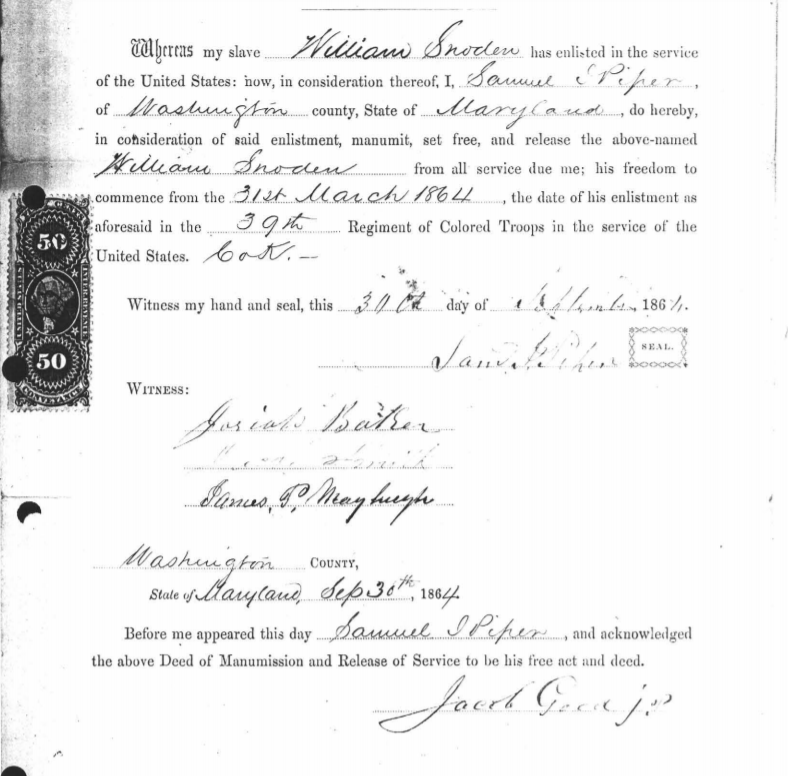 Whereas my slave William Snoden has enlisted in the service
of the United States: now, in consideration thereof, I, Samuel I Piper,
of Washington county, State of Maryland, do hereby,
in consideration of said enlistment, manumit, set free, and release the above-named
William Snoden from all service due me; his freedom to
commence from the 31st March 1864, the date of his enlistment as
aforesaid in the 39th Regiment of Colored Troops in the service of the
United States. Co K. —
50
UNITED STATES
INTER. REVENUE
50
CONVEYANCE
Witness my hand and seal, this 30th day of September 1864.
Saml I Piper SEAL.
WITNESS:
Josiah Baker
Smith
James, P, Mayhugh
Washington COUNTY,
State of Maryland, Sep 30th, 1864
Before me appeared this day Samuel I Piper, and acknowledged
the above Deed of Manumission and Release of Service to be his free act and deed.
Jacob